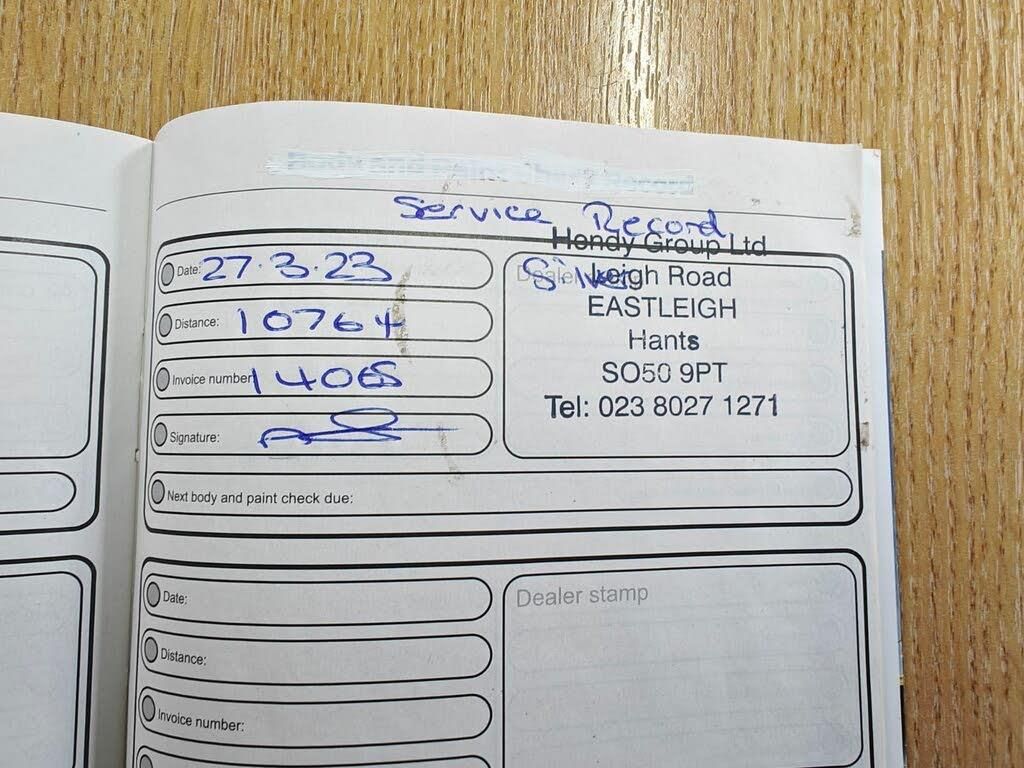 Service Record
Date: 27.3.23
Distance: 10764
Invoice number: 14065
Signature:
Hendy Group Ltd
Silver
Leigh Road
EASTLEIGH
Hants
SO50 9PT
Tel: 023 8027 1271
Next body and paint check due:
Date:
Dealer stamp
Distance:
Invoice number: